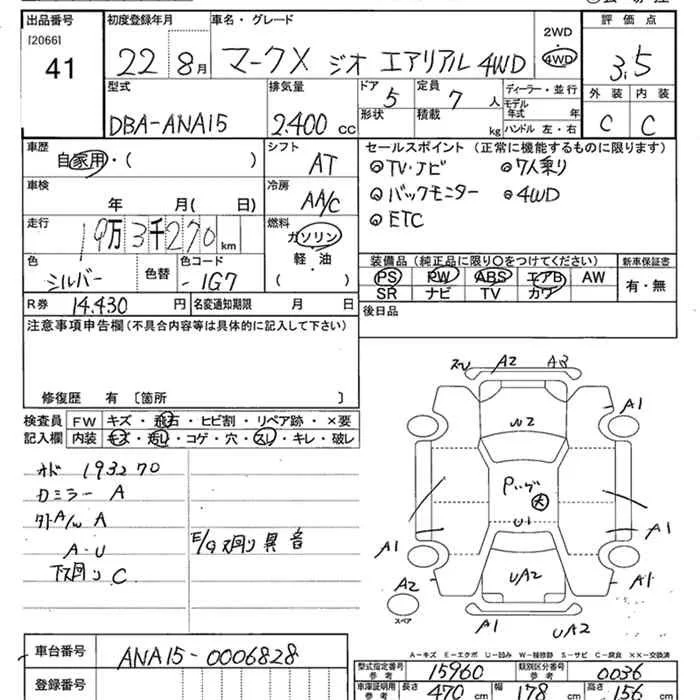 出品番号 初度登録年月 車名・グレード 評価点
[2066] 2WD
41 22 8月 マークX ジオ エアリアル 4WD 4WD 3.5
型式 排気量 ドア 定員 ディーラー・並行 外装 内装
5 7人 モデル年式 年
DBA-ANA15 2.400cc 形状 積載 kg ハンドル 左・右 C C
車歴 シフト セールスポイント (正常に機能するものに限ります)
自家用・( ) AT TV・ナビ 7人乗り
車検 冷房 バックモニター 4WD
年 月( 日) AA/C ETC
走行 燃料
19万3千270km ガソリン 装備品(純正品に限り○をつけてください) 新車保証書
色 色替 色コード 軽・油 PS PW ABS エアB AW 有・無
シルバー 1G7 ( ) SR ナビ TV カワ
R券 14.430円 名変通知期限 月 日 後日品
注意事項申告欄(不具合内容等は具体的に記入して下さい)
修復歴 有 〔箇所 〕
検査員 FW キズ・飛石・ヒビ割・リペア跡・×要
記入欄 内装 キズ・汚レ・コゲ・穴・スレ・キレ・破レ
オド 193270
カミラー A
外A/W A
A・U
下廻り C
E/G廻り異音
スレ A2 A3
A1
W2
Pいげ 大
U1
A1 A1
UA2
A2 A1
スペア
A1 UA2
A-キズ E-エクボ U-凹み W-補修跡 S-サビ C-腐食 ××-交換済
車台番号 ANA15-0006828
登録番号
型式指定番号 参考 15960 類別区分番号 参考 0036
車庫証明用 参考 長さ 470cm 幅 178cm 高さ 156cm